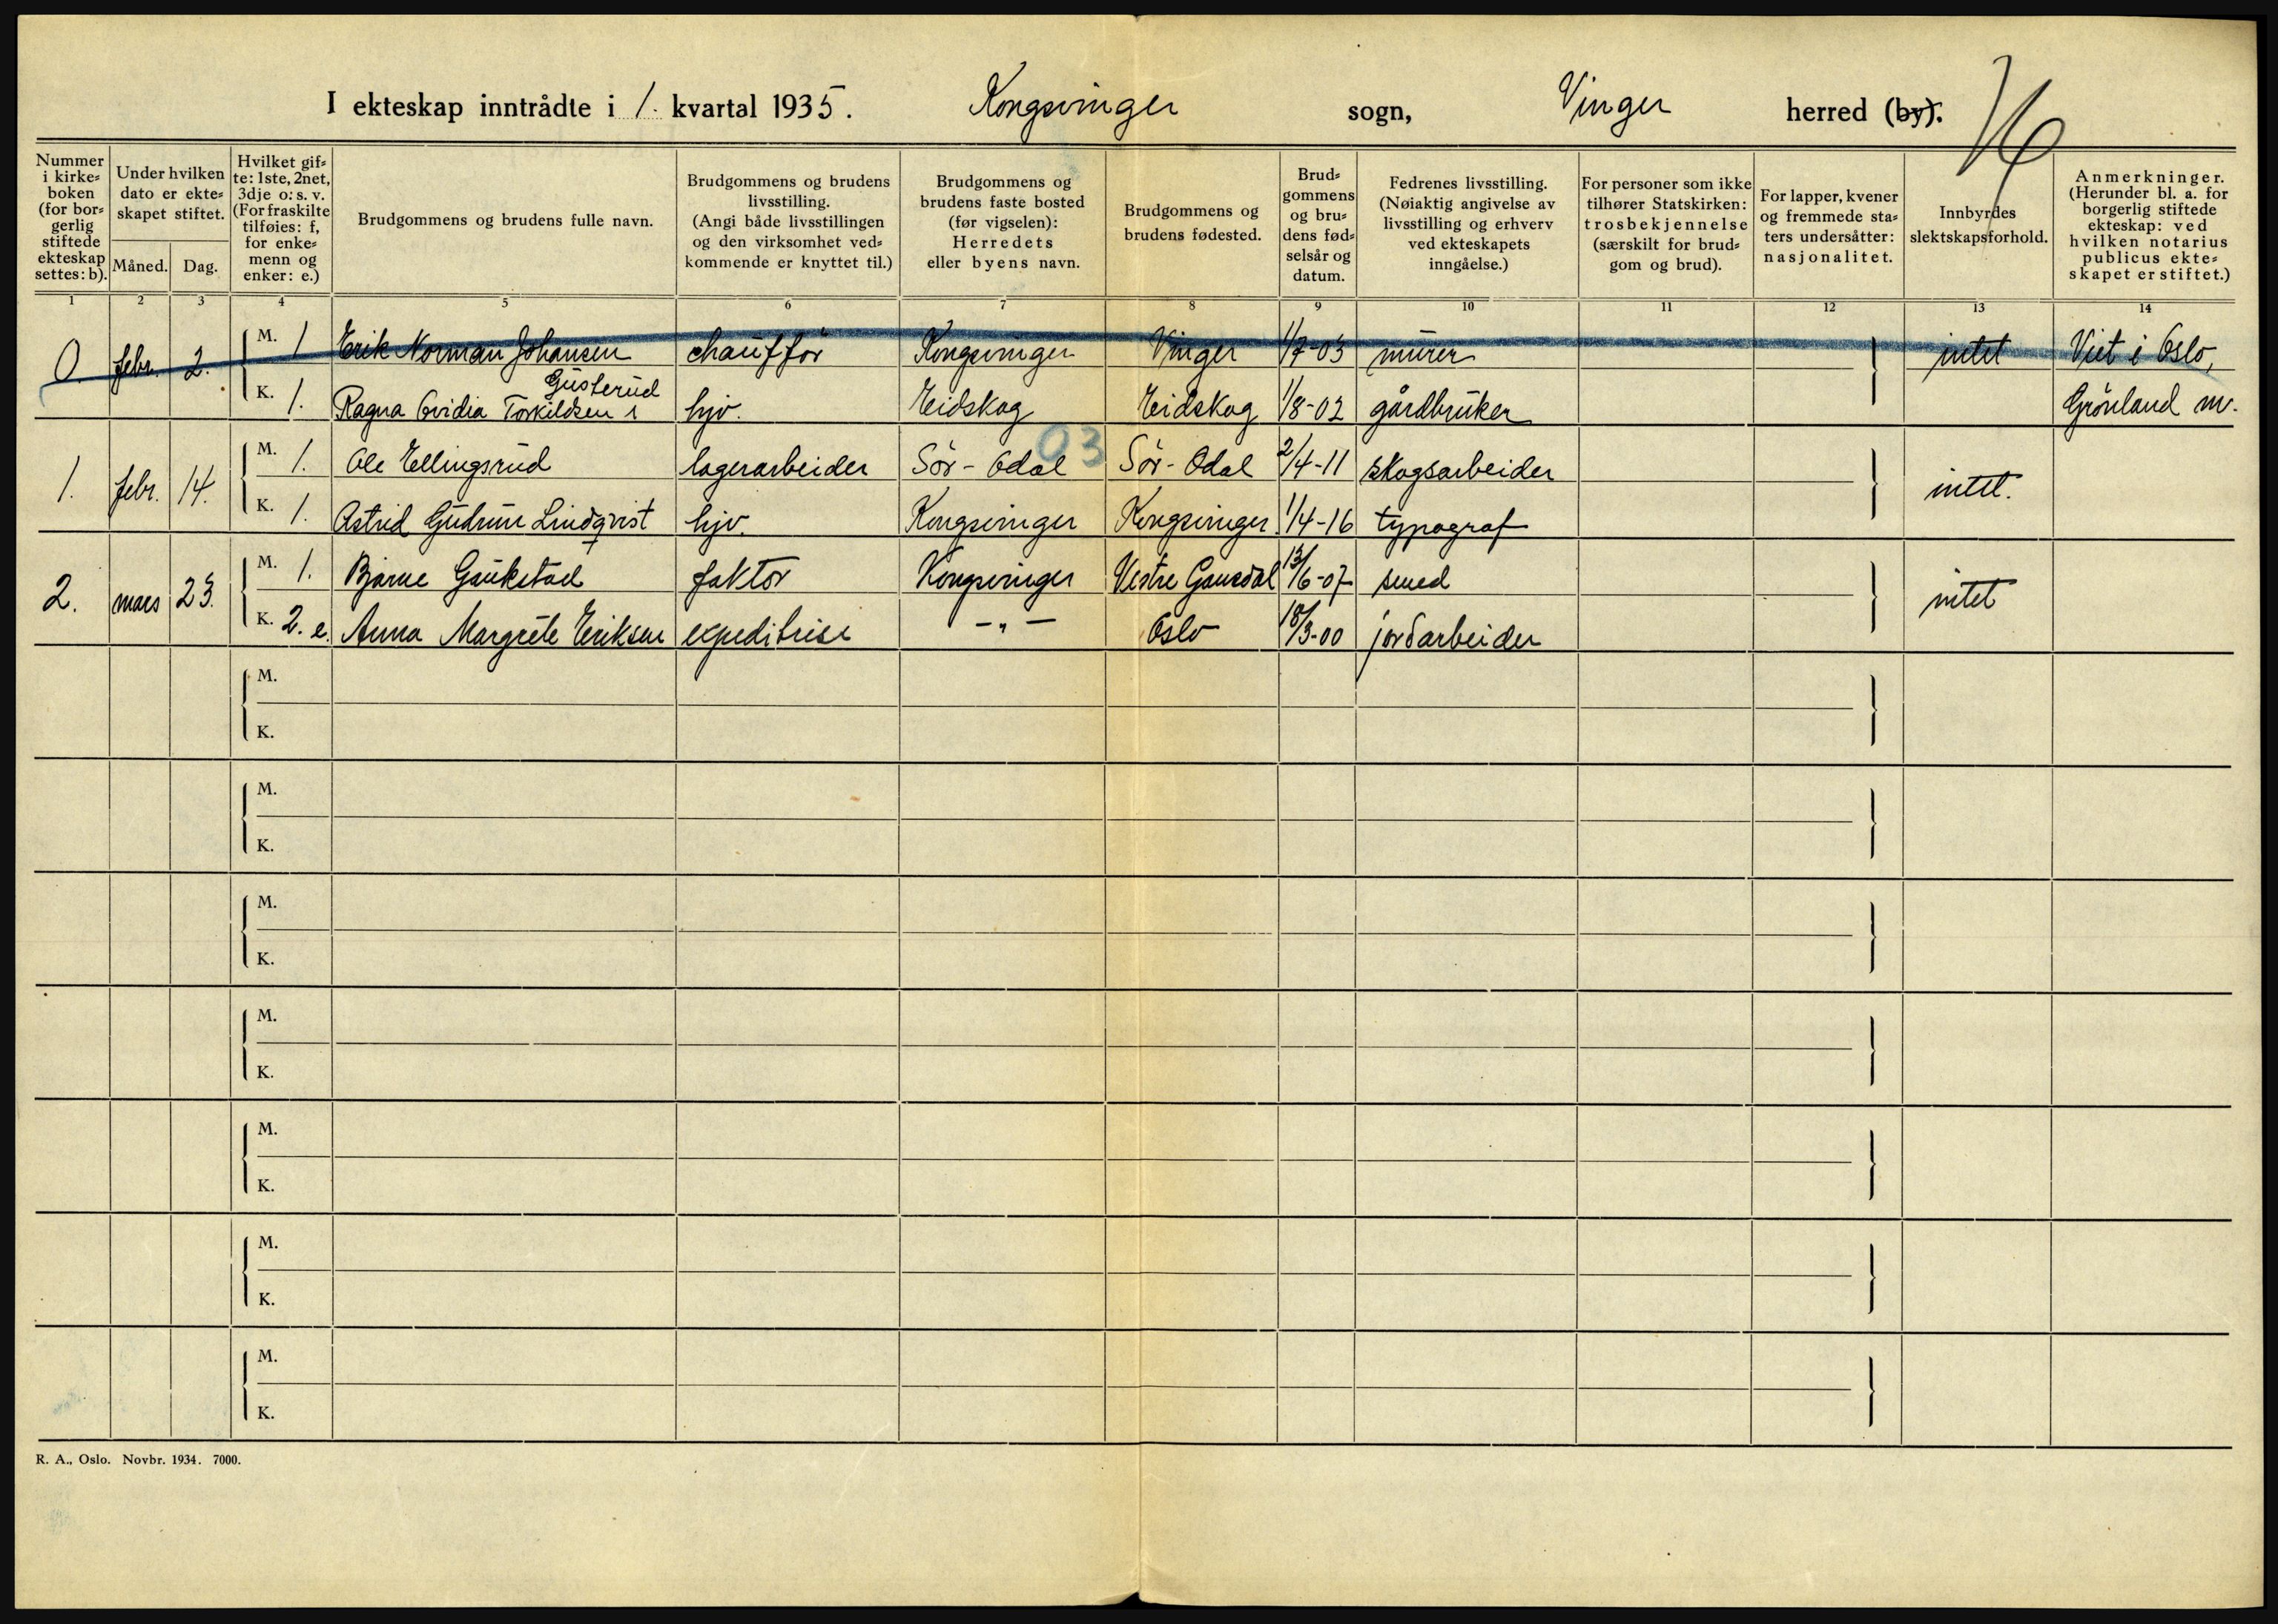 I ekteskap inntrådte i 1. kvartal 1935. Kongsvinger sogn, Vinger herred (by).
Nummer i kirke=boken (for bor=gerlig stiftede ekteskap settes: b).
Under hvilken dato er ekte=skapet stiftet.
Måned. Dag.
Hvilket gif=te: 1ste, 2net, 3dje o: s. v. (For fraskilte tilføies: f, for enke=menn og enker: e.)
Brudgommens og brudens fulle navn.
Brudgommens og brudens livsstilling. (Angi både livsstillingen og den virksomhet ved=kommende er knyttet til.)
Brudgommens og brudens faste bosted (før vigselen): Herredets eller byens navn.
Brudgommens og brudens fødested.
Brud=gommens og bru=dens fød=selsår og datum.
Fedrenes livsstilling. (Nøiaktig angivelse av livsstilling og erhverv ved ekteskapets inngåelse.)
For personer som ikke tilhører Statskirken: trosbekjennelse (særskilt for brud=gom og brud).
For lapper, kvener og fremmede sta=ters undersåtter: nasjonalitet.
Innbyrdes slektskapsforhold.
Anmerkninger. (Herunder bl. a. for borgerlig stiftede ekteskap: ved hvilken notarius publicus ekte=skapet er stiftet.)
1 2 3 4 5 6 7 8 9 10 11 12 13 14
0. febr. 2. M. 1 Erik Norman Johansen chauffør Kongsvinger Vinger 1/7-03 murer intet Viet i Oslo,
Gusterud
K. 1. Ragna Ovidia Torkildsen hjv. Eidskog Eidskog 1/8-02 gårdbruker Grönland m.
03
1. febr. 14. M. 1. Ole Ellingsrud lagerarbeider Sör-Odal Sör-Odal 2/4-11 skogsarbeider intet.
K. 1. Astrid Gudrun Lindqvist hjv. Kongsvinger Kongsvinger 1/4-16 typograf
2. mars 23. M. 1. Bjarne Gaukstad faktor Kongsvinger Vestre Gausdal 13/6-07 smed intet
K. 2. e. Anna Margrete Eriksen expeditrise -"- Oslo 18/3-00 jordarbeider
M.
K.
M.
K.
M.
K.
M.
K.
M.
K.
M.
K.
M.
K.
R. A., Oslo. Novbr. 1934. 7000.